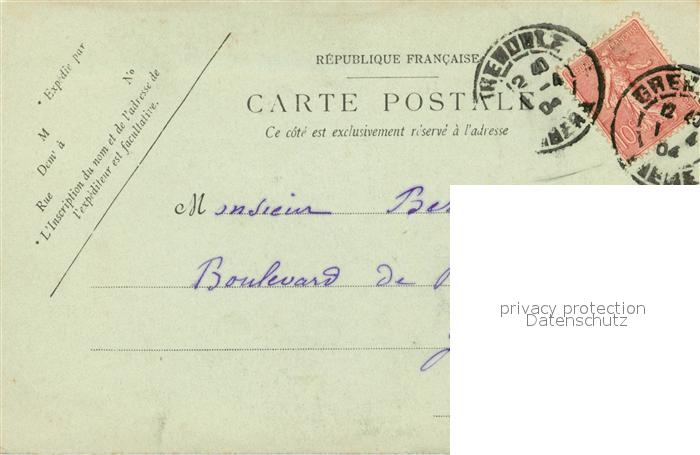 RÉPUBLIQUE FRANÇAISE
CARTE POSTALE
Ce côté est exclusivement réservé à l'adresse
* Expédie par
No
M
Dem^t à
Rue
* L'Inscription du nom et de l'adresse de
l'expéditeur est facultative.
GRENOBLE
12 40
1 -4
04
ISERE
GREN
12
1 4
04
10
Monsieur
Boulevard de
privacy protection
Datenschutz